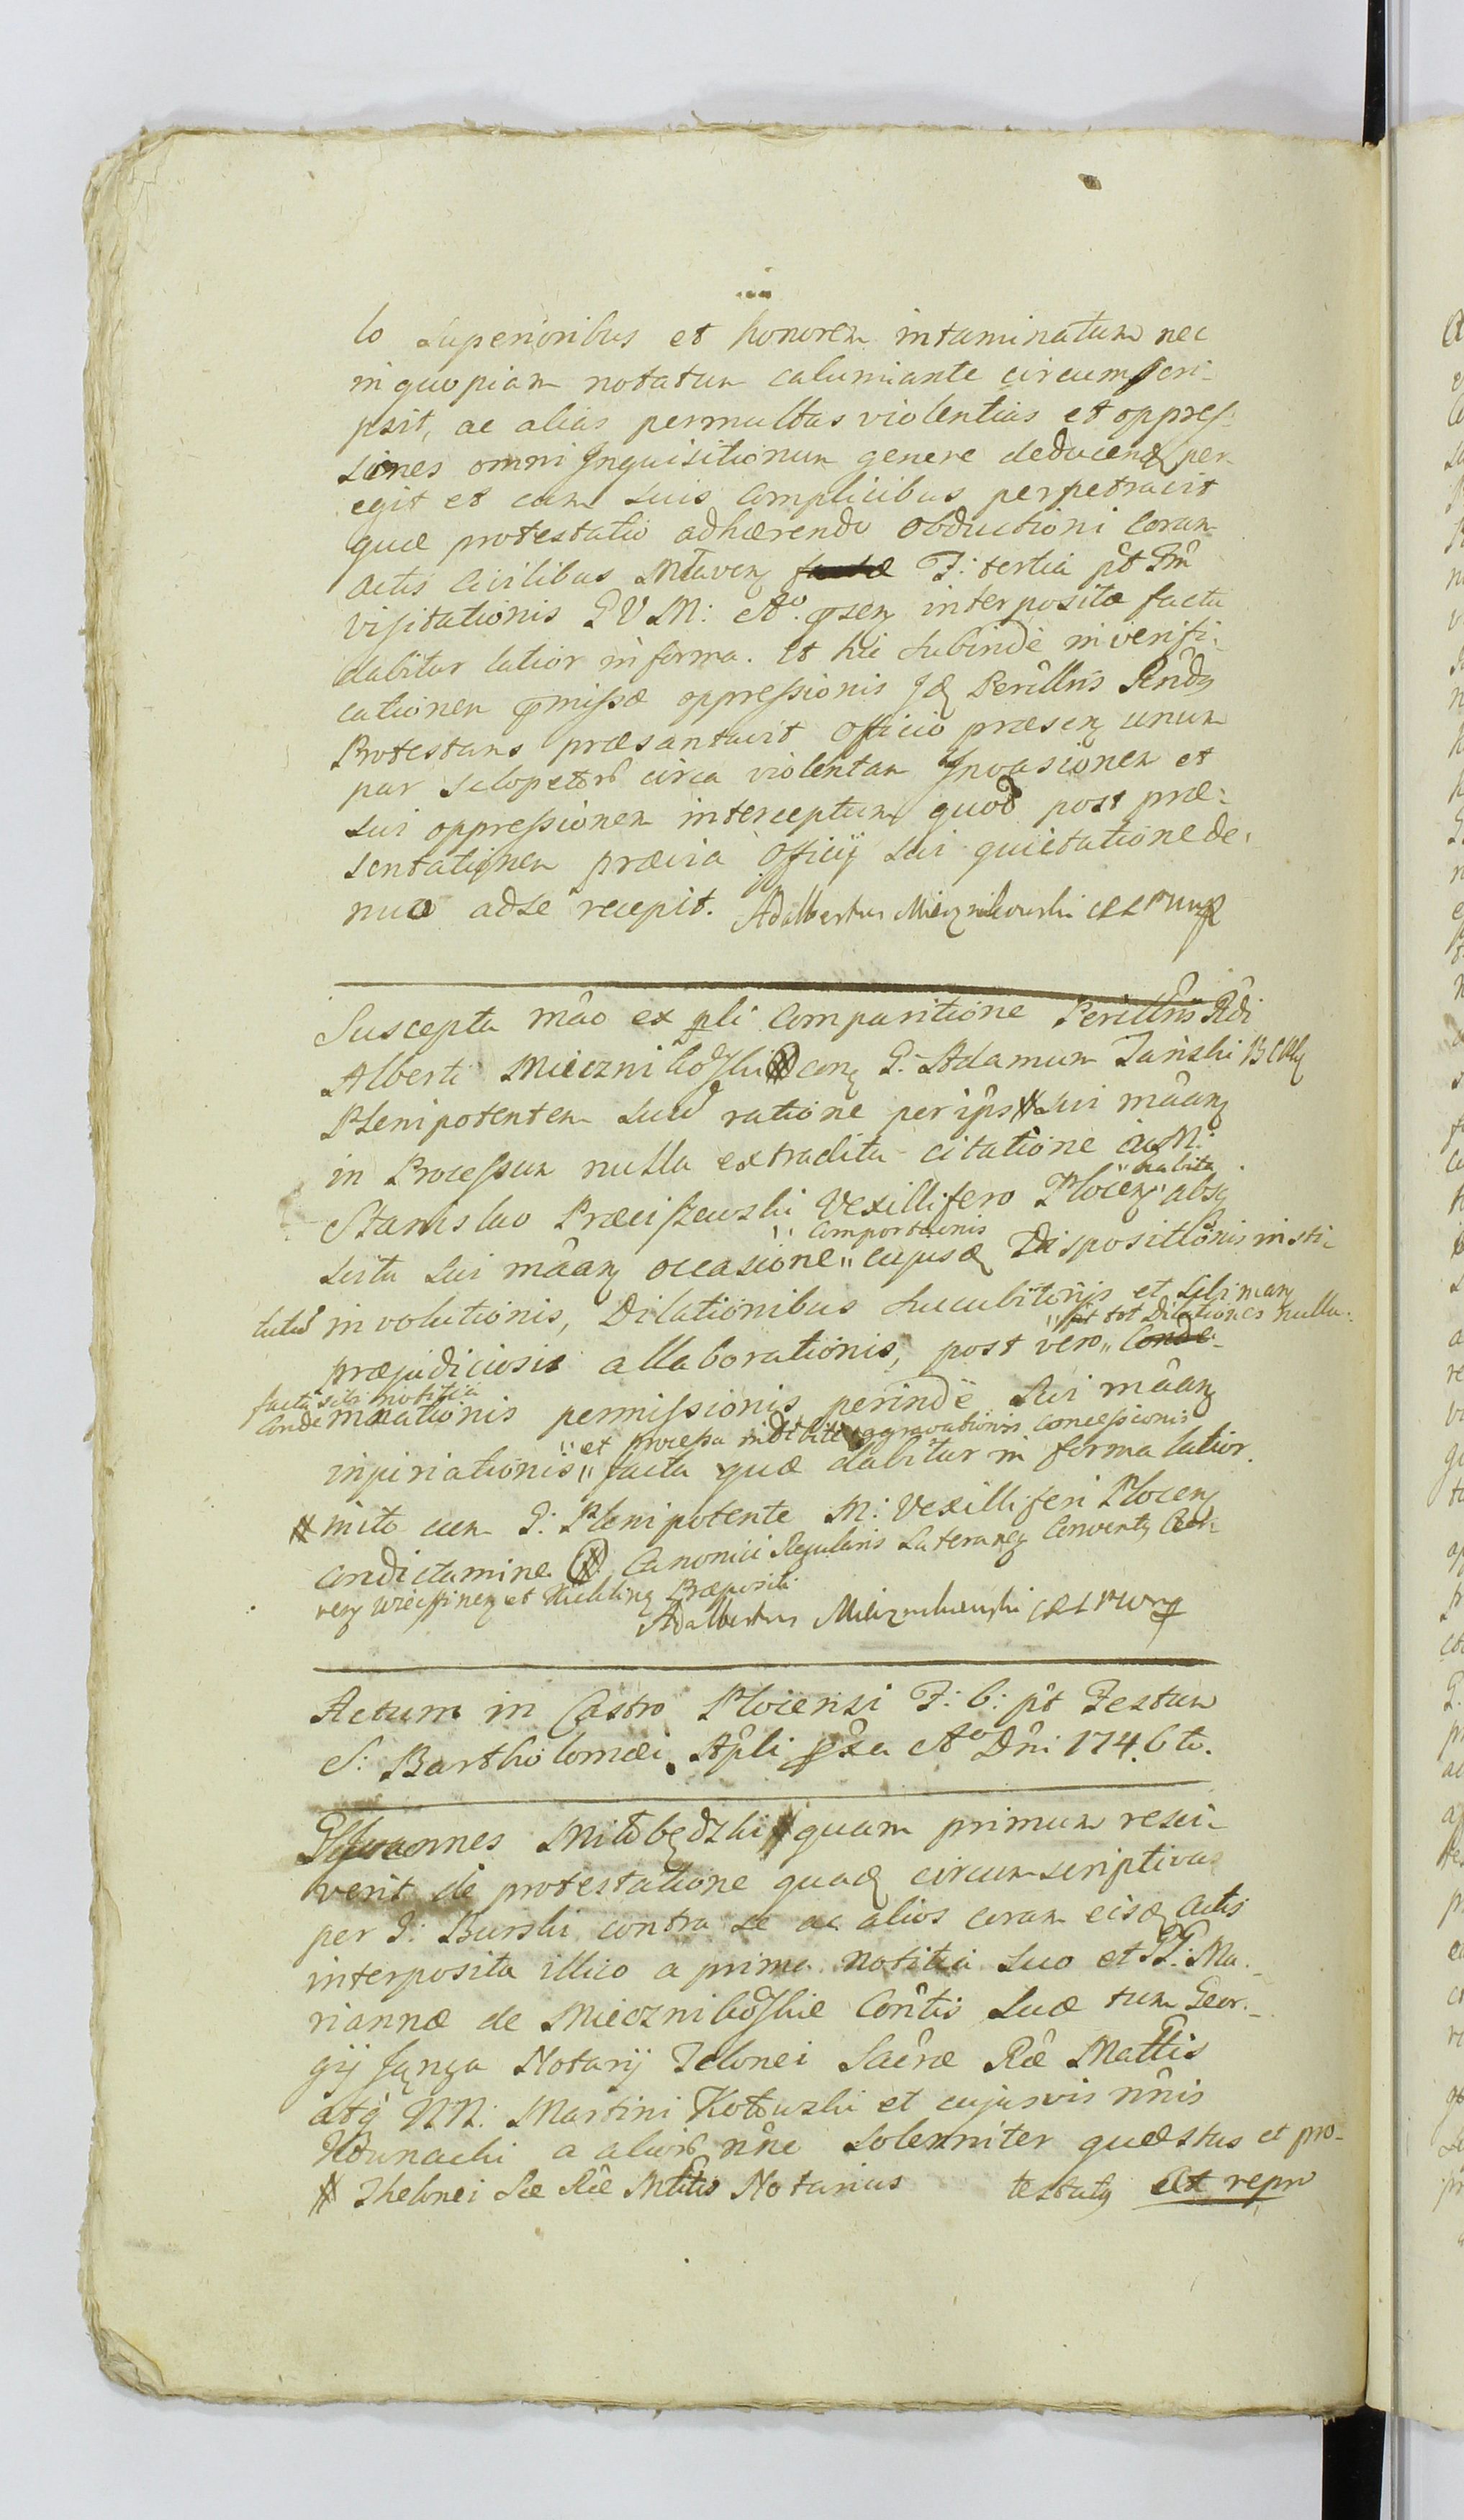 lo superioribus et honorem intaminatum nec
in quopiam notatum calumiante circumscri-
psit, ac alias permultas violentias et oppres-
siones omni Inquisitionum genere deducenq per
egit et cum suis complicibus perpetravit
quæ protestatio adhærendo obductioni coram
actis Civilibus Mlavenq F: tertia pt Fm
visitationis B V M: Ao. psenq interpositæ facta
dabitur latior in forma. Et hic subinde in verifi-
cationem pmissæ oppressionis Jdq Perillris Rndq
Protestans præsantavit Officio præsenq unum
par sclopetorum circa violentam Invasionem et
sui oppressionem interceptum quod post præ:
sentationem prævia Officij sui quietatione de:
nuo ad se recepit. Adalbertus Mieznikowski CRL
Suscepta mâo ex pli Comparitione Perillris Rdi
Alberti Mieczniko͡ski conq G. Adamum Janski
Plenipotentem suum ratione per ips sui mâanq
in Processum nulla extradita citatione a M:
habita
Stanislao Præciszewski Vexillifero Plocenq absq
Comportaonis
scitu sui mâanq occasione cujusq Dispositionis insti-
tutum involutionis, Dilationibus succubitorijs et sibi manq
pt tot Dilationes nulla
præjudiciosis allaborationis, post vero Conde-
facta sibi notitia
Condemnationis permissionis perinde sui mâanq
et processu indebite aggravationis concessionis
injuriationis facta quæ dabitur in forma latior.
inito cum G: Plenipotente M: Vexilliferi Plocenq
condictamine. Canonici Regularis Lateranq Conventq
venq et Præpositi
Adalbertus Mieznikowski CRL
Actum in Castro Plocensi F: 6: pt Festum
S: Bartholomæi Apli pxa Ao Dni 1746to.
G Joannes Milobędzki quam primum resci-
verit de protestatione quadq circumscriptiva
per G: Burski contra se ac alios coram eisdq Actis
interposita illico a prima notitia suo et G: Ma-
riannæ de Mieczniko͡skie Contis suæ tum Geor-
gij Notarij Telonei Sacræ Rê Mattis
atq NN: Martini Kotowski et cujusvis nnis
a alior nne solenniter quæstus et pro-
Thelonei Sæ Rê Mttis Notarius testatq est repro